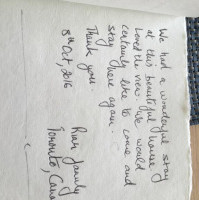 We had a wonderful stay
at this beautiful house
Loved the view. We would
certainly like to come and
stay here again.
Thank you
8th Oct, 2016
Family
Toronto, Cana